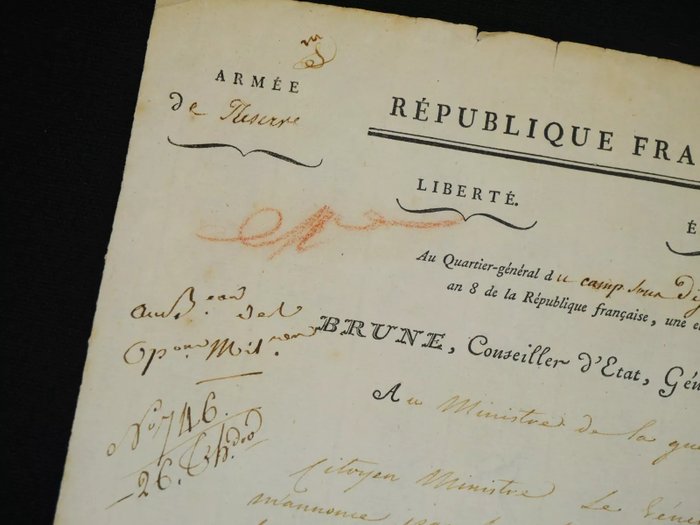 ARMÉE
de Réserve
RÉPUBLIQUE FRA
LIBERTÉ.
É
Au Quartier-général du camp sous Dij
an 8 de la République française, une e
au Beau des
Opons Milres
BRUNE, Conseiller d'Etat, Gén
Au Ministre de la gue
No 746.
26. thdod
Citoyen Ministre Le Géné
m'annonce